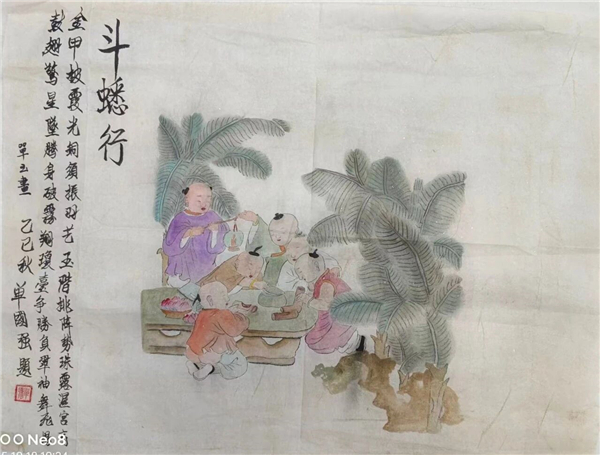 斗蟋行
金甲披霞光铜须振羽艺玉阶排阵势珠露湿宫
鼓翅惊星坠腾身破雾翔琼台争胜负翠袖舞
单玉画
乙巳秋 单國强题
Neo8